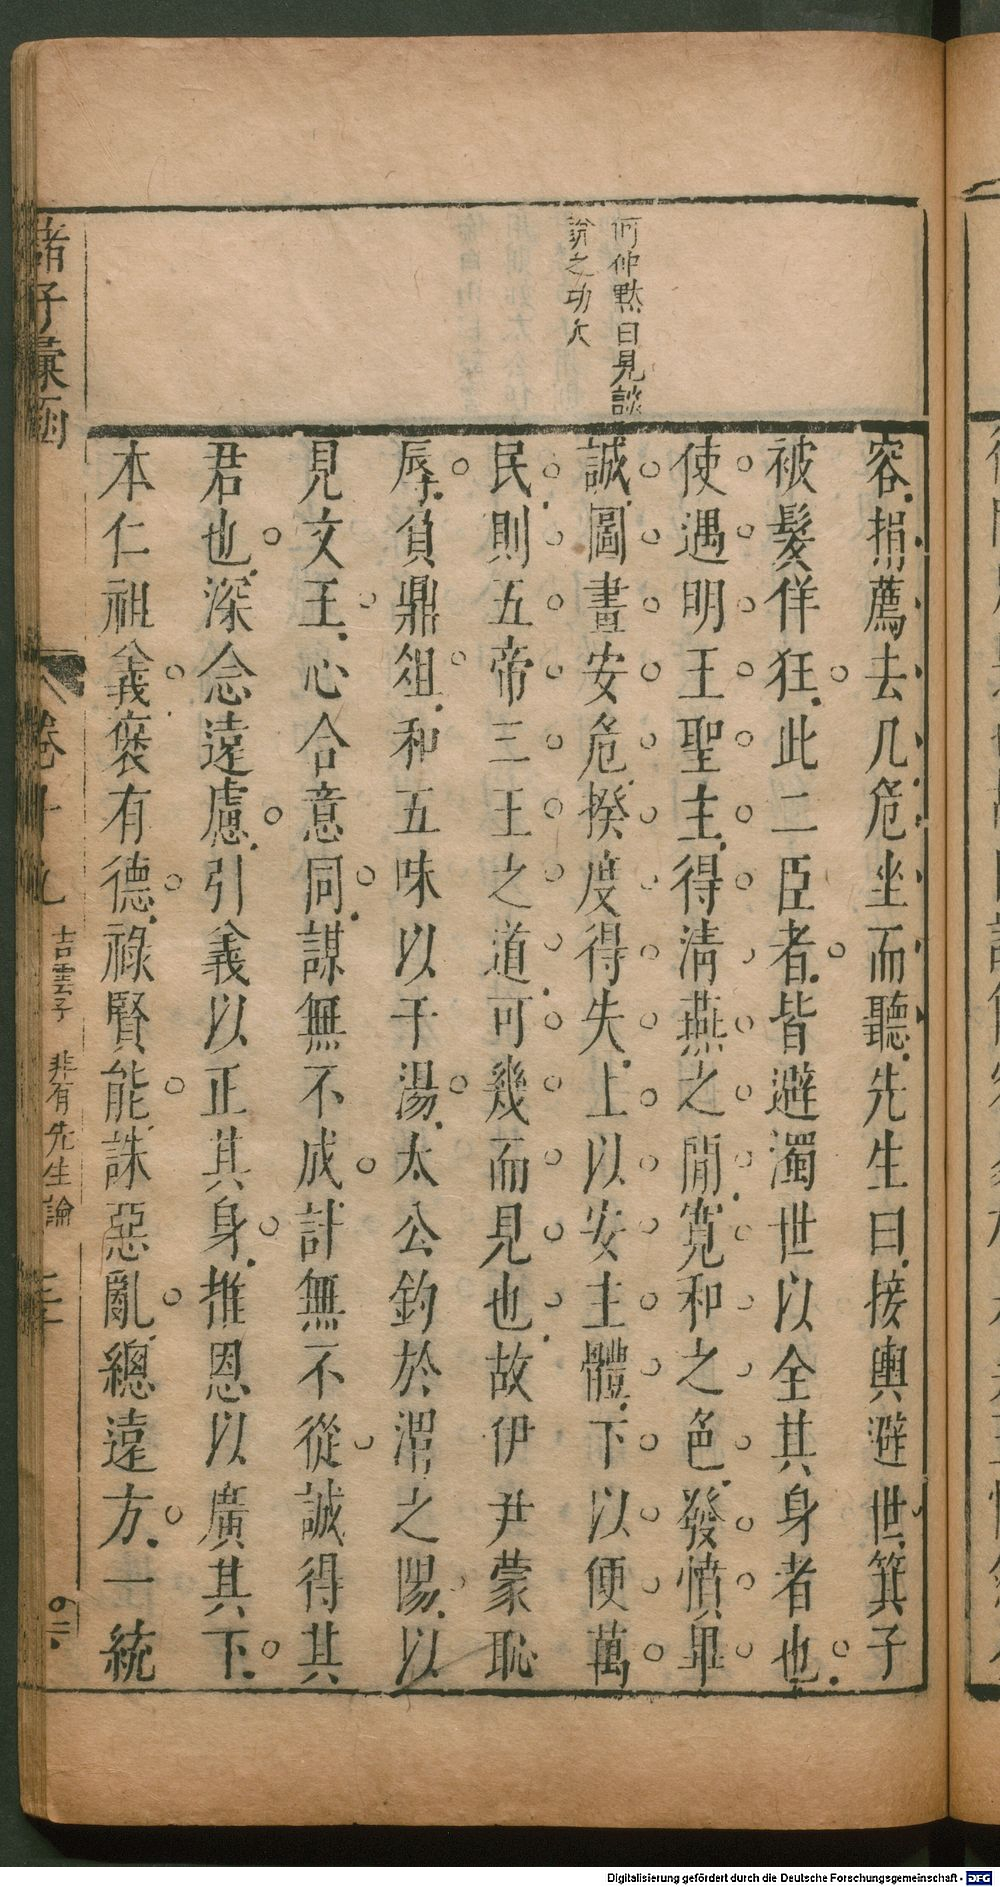 何仲默曰見談
論之功大
容捐薦去几危坐而聽先生曰接輿避世箕子
被髮佯狂此二臣者皆避濁世以全其身者也
使遇明王聖主得淸燕之閒寬和之色發憤畢
誠圖畫安危揆度得失上以安主體下以便萬
民則五帝三王之道可幾而見也故伊尹蒙恥
辱負鼎俎和五味以干湯太公釣於渭之陽以
見文王心合意同謀無不成計無不從誠得其
君也深念遠慮引義以正其身推恩以廣其下
本仁祖義褒有德祿賢能誅惡亂總遠方一統
諸子彙函
卷十九
吉雲子 非有先生論
Digitalisierung gefördert durch die Deutsche Forschungsgemeinschaft - DFG